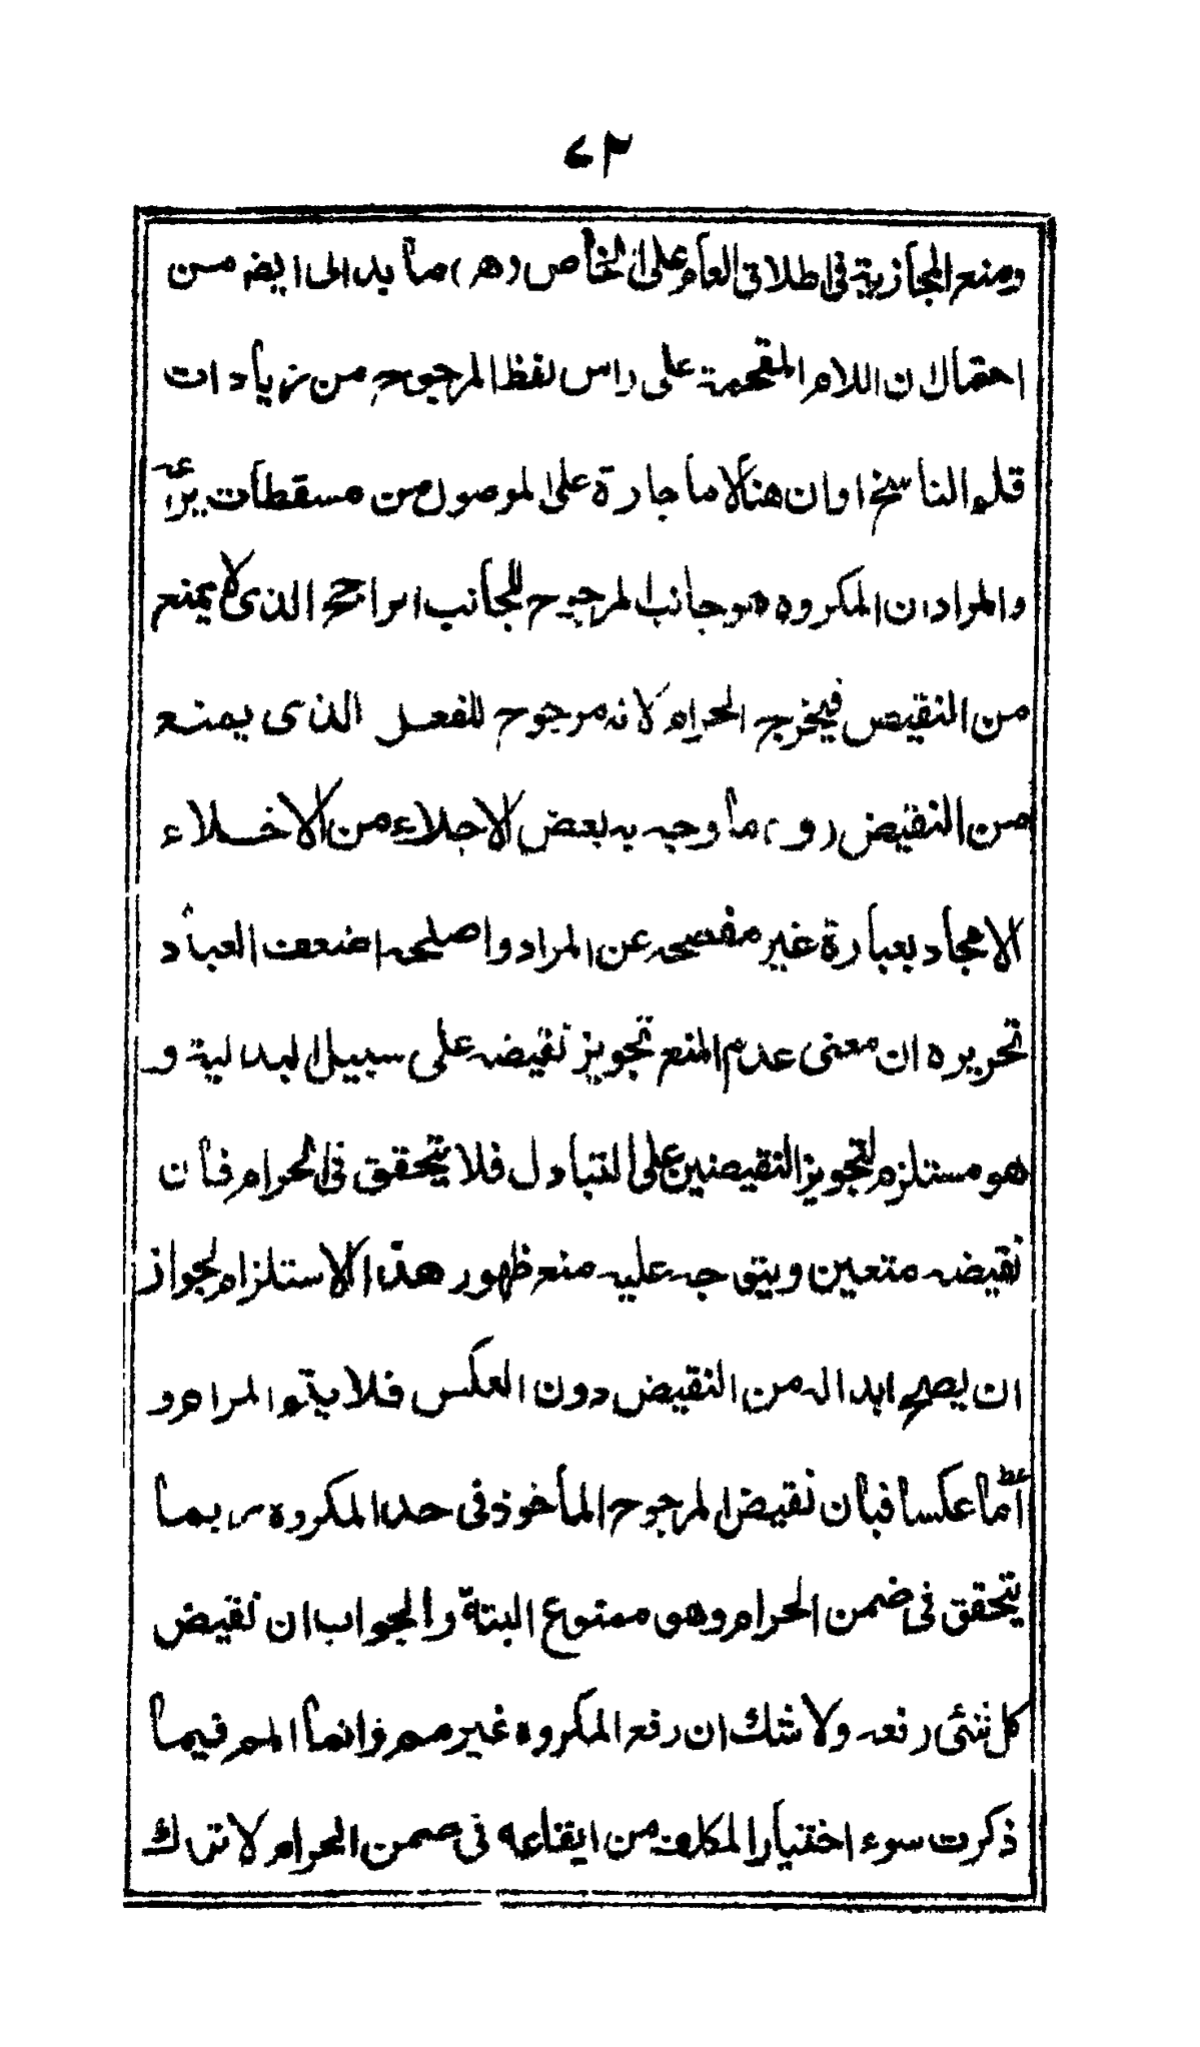 ٧٣
ومنع المجازية فى اطلاق العام على الخاص (هـ) ما بدا لى ايضه من
احتمال ان اللام المقحمة على راس لفظ المرجوح من زيادات
قلم الناسخ او ان هناك لاما جارة على الموصول من مسقطات يراعه
والمراد ان المكروه هو جانب المرجوح للجانب الراجح الذى لا يمنع
من النقيض فيخرج الحرام لانه مرجوح للفعل الذى يمنع
من النقيض (و) ما وجه به بعض الاجلاء من الاخلاء
الامجاد بعبارة غير مفصحه عن المراد واصلحه اضعف العباد
تحريره ان معنى عدم المنع تجويز نقيضه على سبيل البدالية و
هو مستلزم لتجويز النقيضين على التبادل فلا يتحقق فى الحرام فان
نقيضه متعين ويتوجه عليه منع ظهور هذا الاستلزام لجواز
ان يصح ابداله من النقيض دون العكس فلا يتم المرام و
اما عكسا فبان نقيض المرجوح الماخوذ فى حد المكروه ربما
يتحقق فى ضمن الحرام وهو ممنوع البتة والجواب ان نقيض
كل شئى رفعه ولا شك ان رفع المكروه غير مم وانما المم فيما
ذكرت سوء اختيار المكلف من ايقاعه فى ضمن الحرام لا ترك